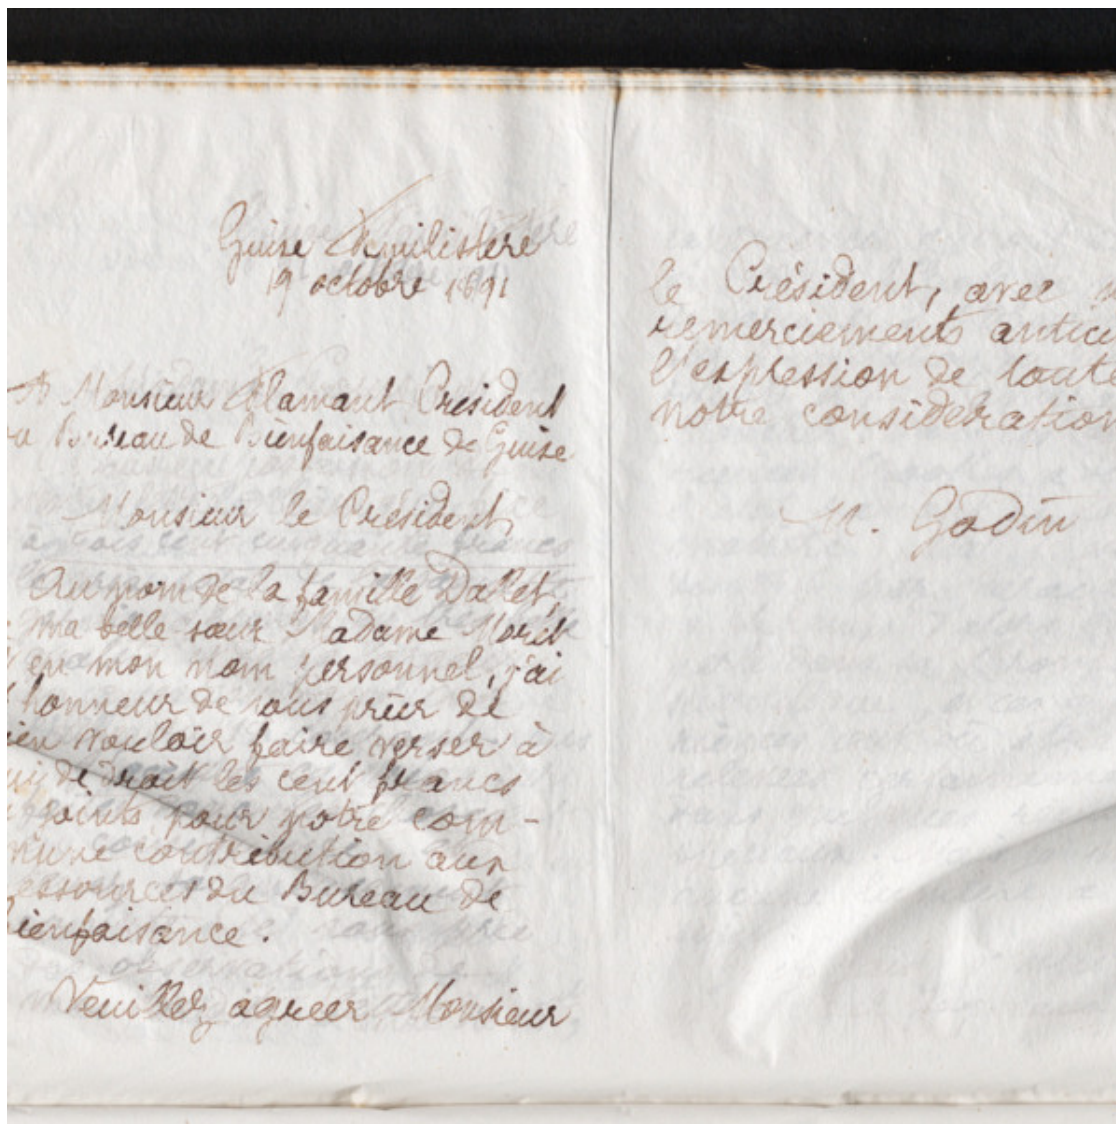 Guise Familistère
19 octobre 1891
A Monsieur Flamant Président
u Bureau de Bienfaisance de Guise
Monsieur le Président,
Au nom de la famille Dallet,
ma belle sœur Madame Moret
en mon nom personnel, j'ai
honneur de vous prier de
ien vouloir faire verser à
ui de droit les cent francs
joints pour notre com-
mune contribution aux
ressources du Bureau de
ienfaisance.
Veuillez agréer Monsieur
le Président, avec
remerciements antici
l'expression de toute
notre considération
M. Godin